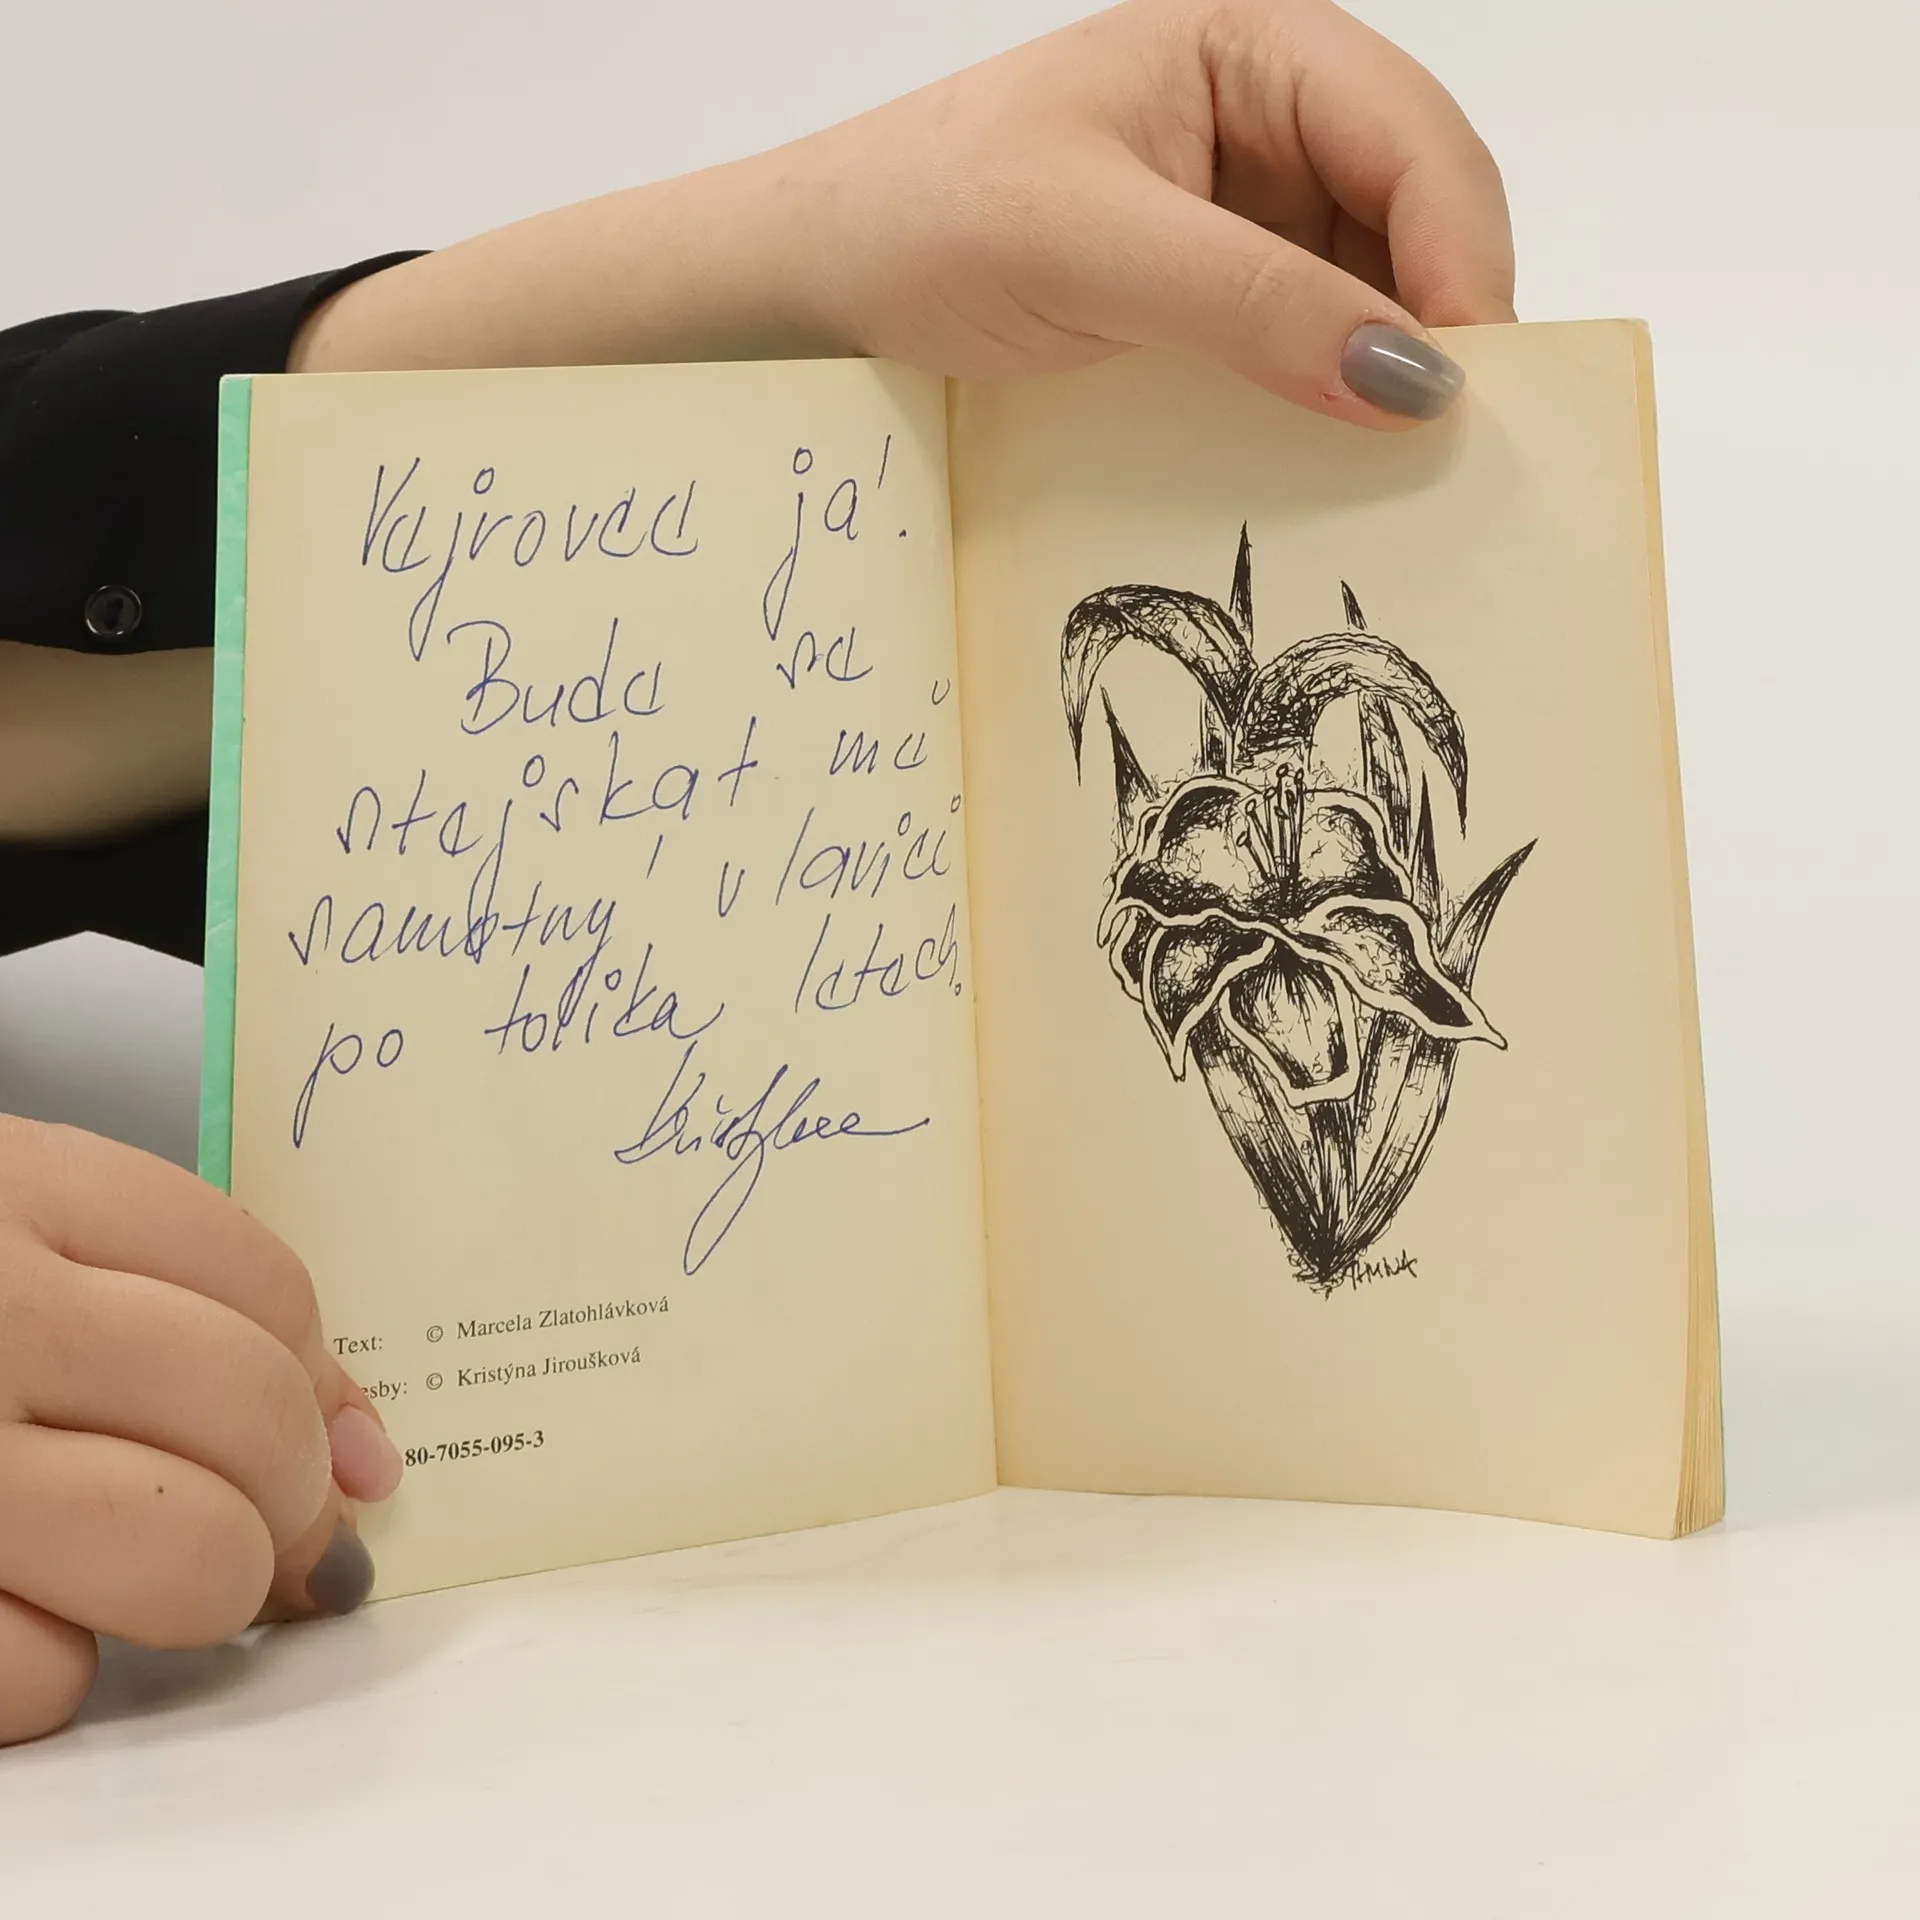 já!
Bude se
stejskat mě
samotný v lavici
po tolika letech.
Text: © Marcela Zlatohlávková
esby: © Kristýna Jiroušková
80-7055-095-3